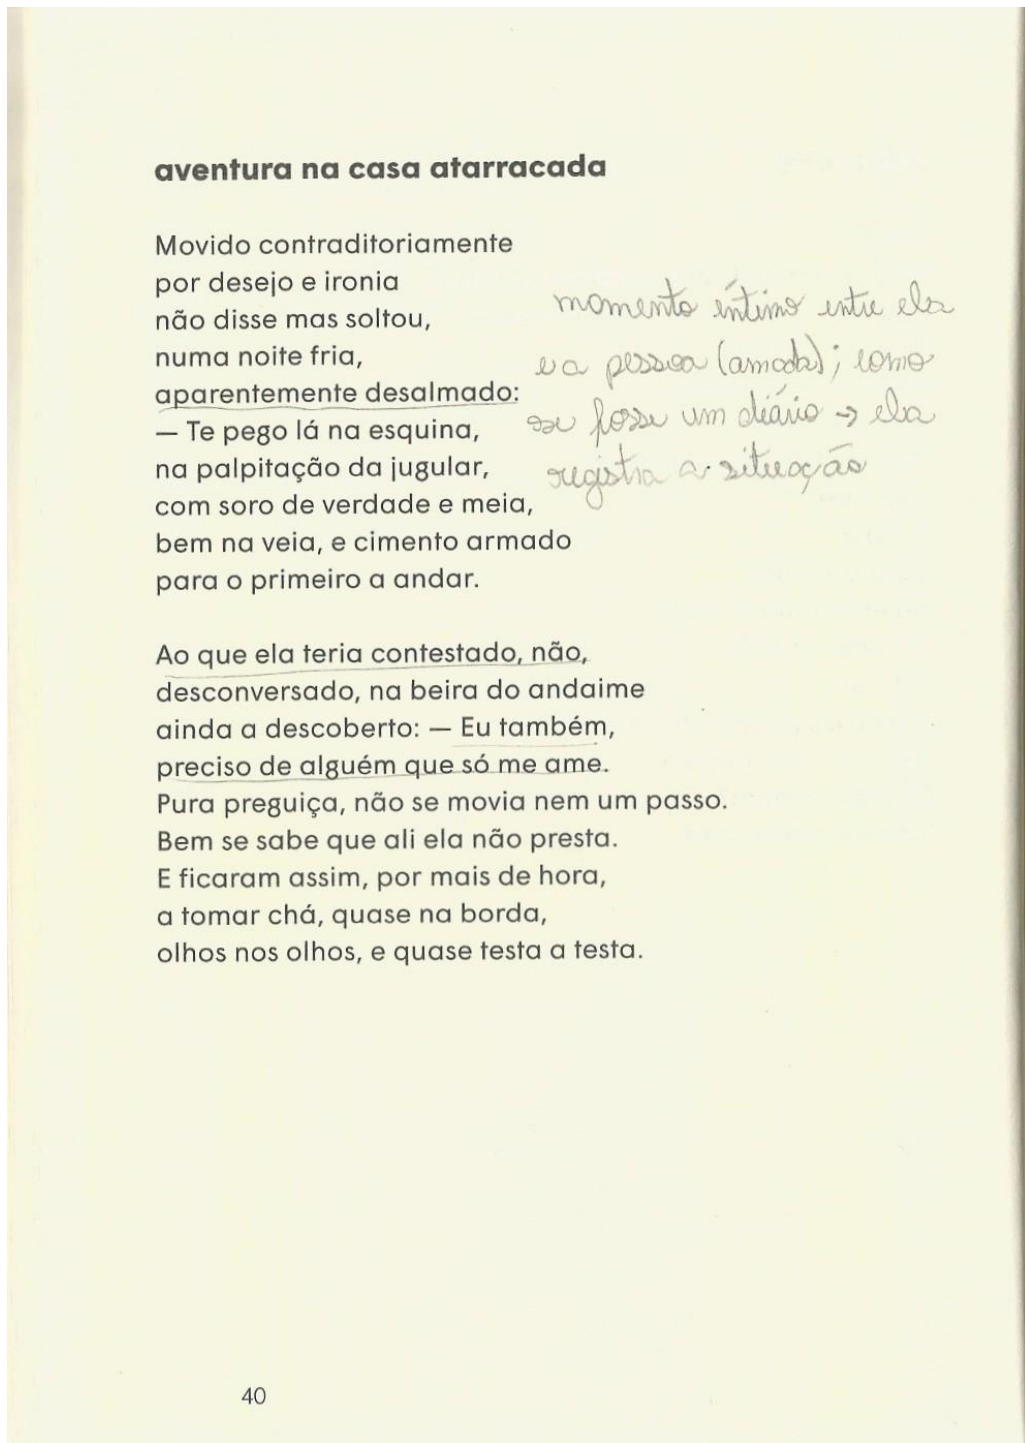 aventura na casa atarracada
Movido contraditoriamente
por desejo e ironia
não disse mas soltou,
numa noite fria,
aparentemente desalmado:
— Te pego lá na esquina,
na palpitação da jugular,
com soro de verdade e meia,
bem na veia, e cimento armado
para o primeiro a andar.
momento íntimo entre ela
e a pessoa (amada); como
se fosse um diário → ela
registra a situação
Ao que ela teria contestado, não,
desconversado, na beira do andaime
ainda a descoberto: — Eu também,
preciso de alguém que só me ame.
Pura preguiça, não se movia nem um passo.
Bem se sabe que ali ela não presta.
E ficaram assim, por mais de hora,
a tomar chá, quase na borda,
olhos nos olhos, e quase testa a testa.
40